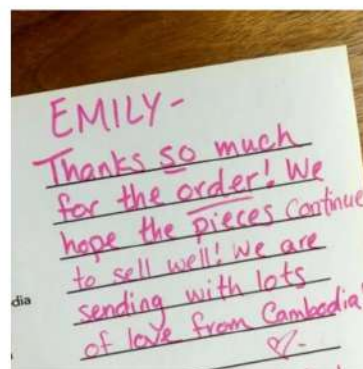 EMILY-
Thanks so much
for the order! We
hope the pieces continue
to sell well! We are
dia
sending with lots
of love from Cambodia!